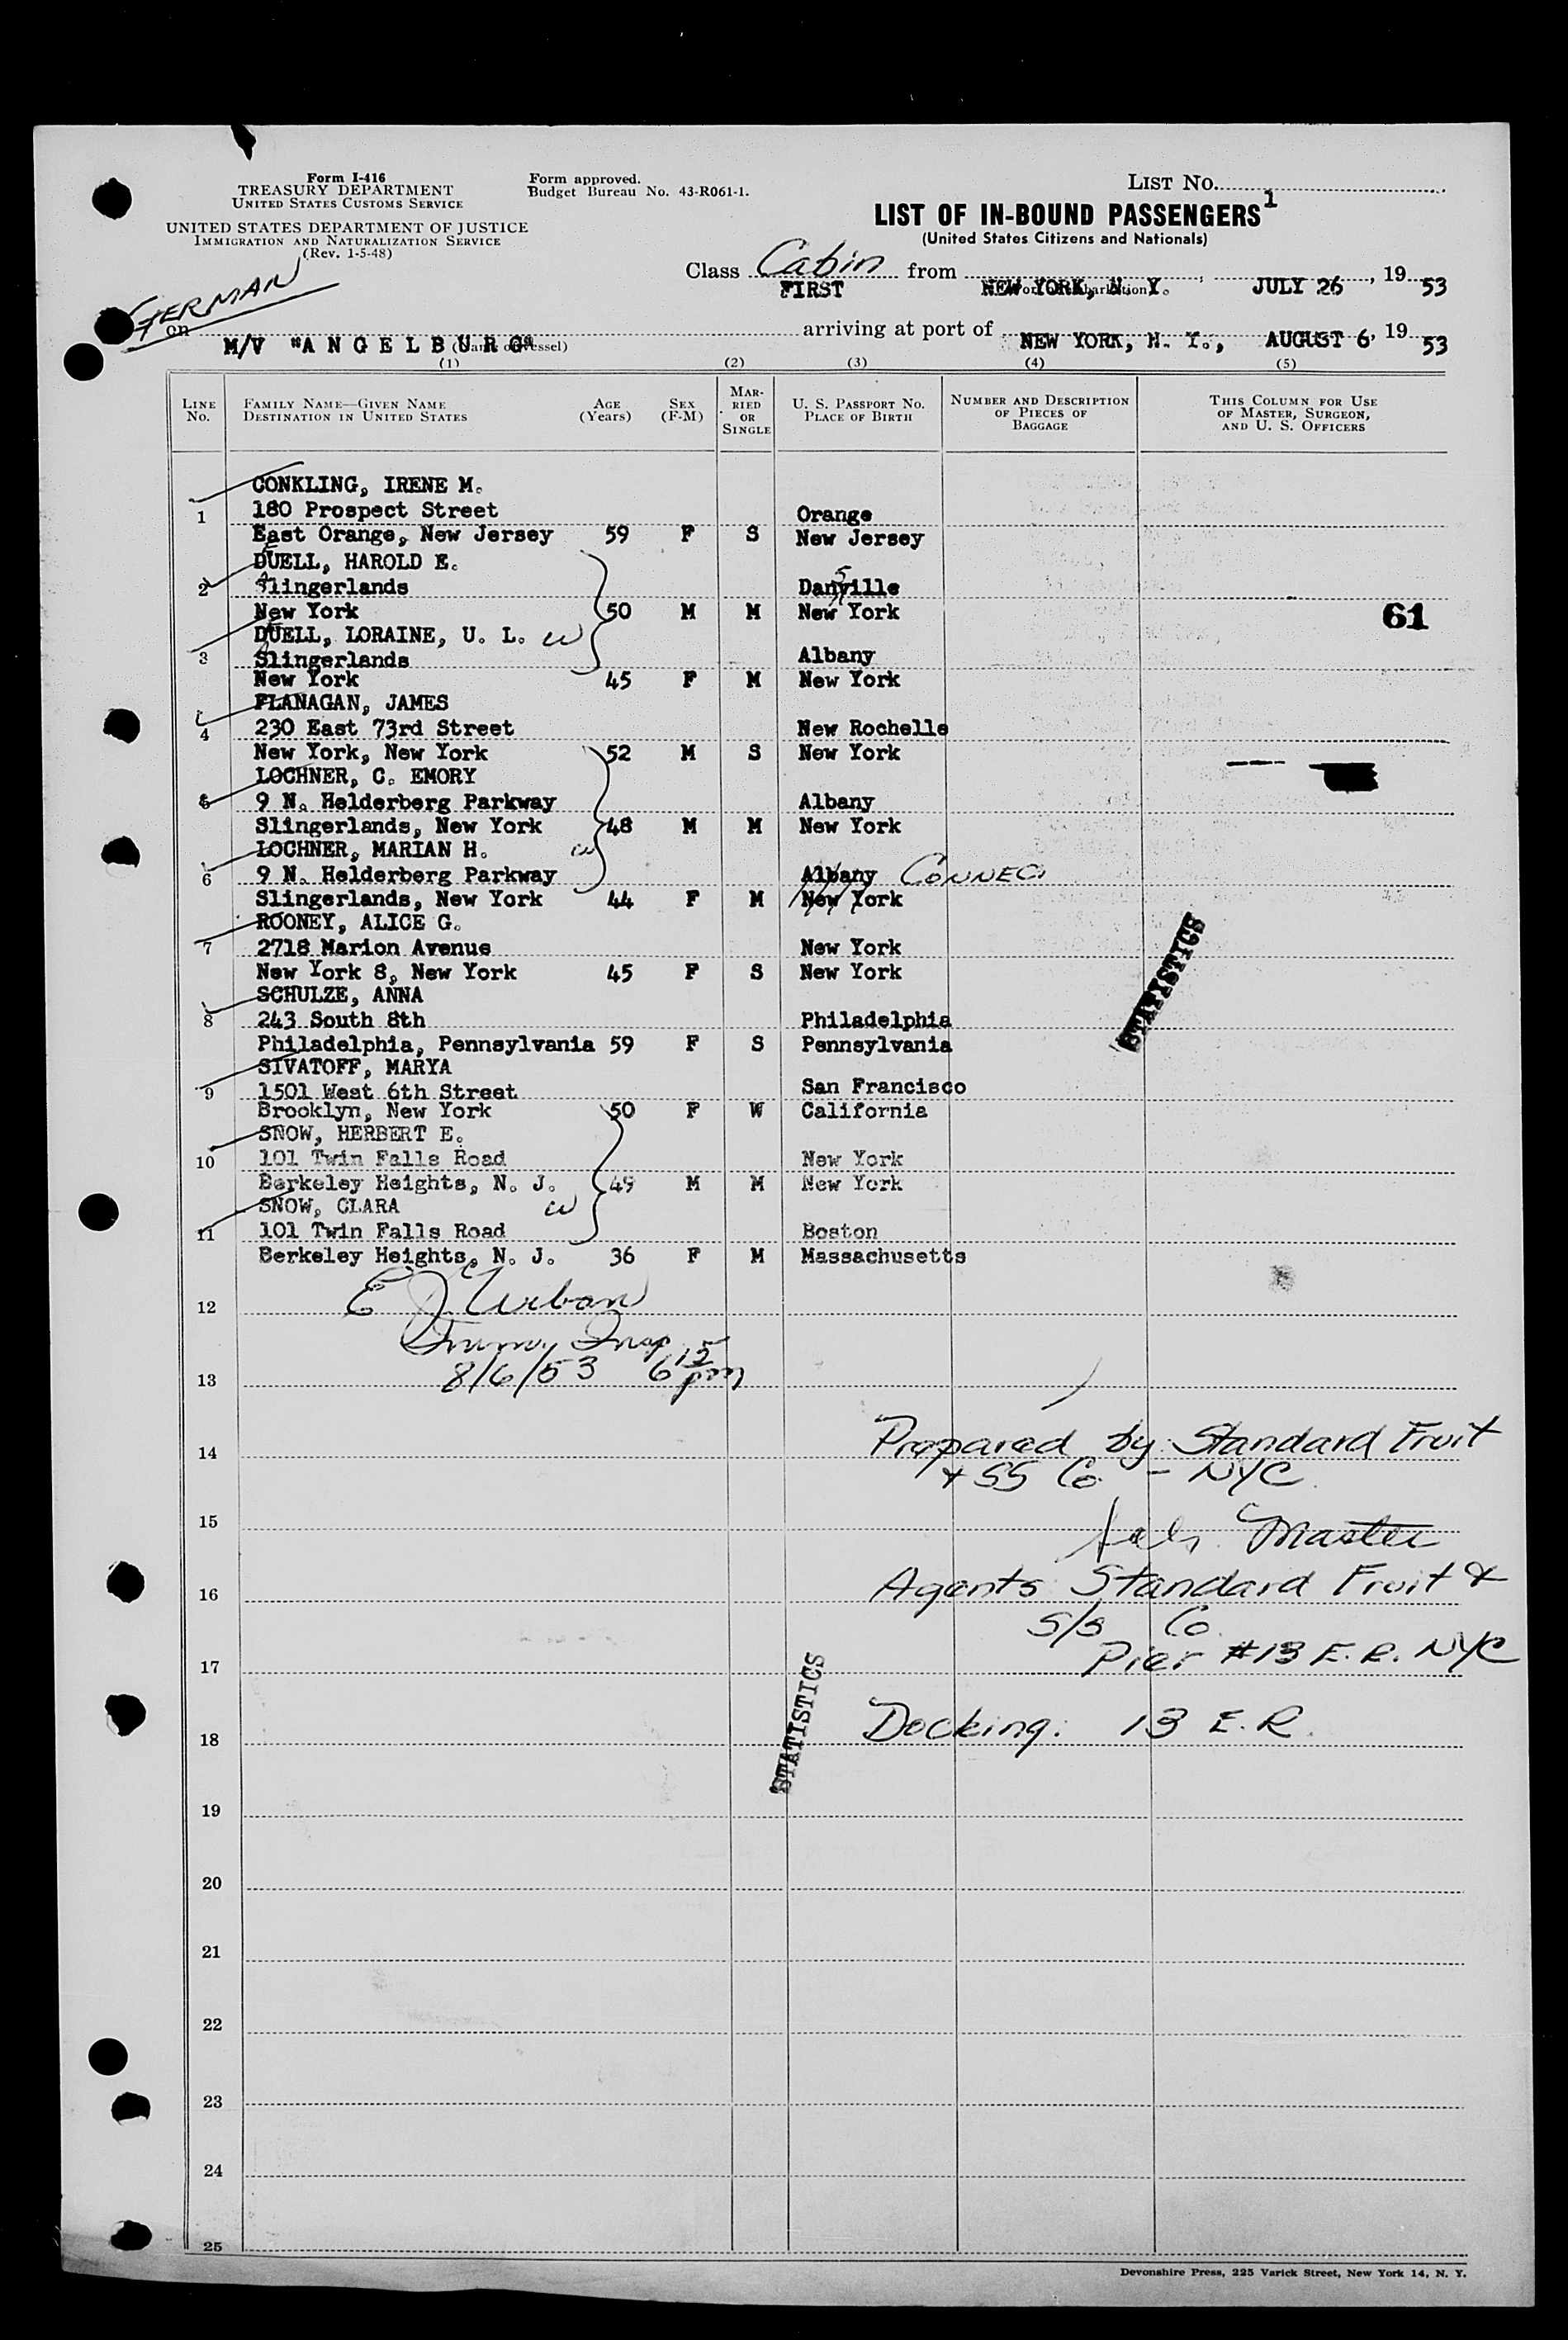 Form I-416
TREASURY DEPARTMENT
UNITED STATES CUSTOMS SERVICE
UNITED STATES DEPARTMENT OF JUSTICE
IMMIGRATION AND NATURALIZATION SERVICE
(Rev. 1-5-48)
Form approved.
Budget Bureau No. 43-R061-1.
LIST No.
1
LIST OF IN-BOUND PASSENGERS
(United States Citizens and Nationals)
GERMAN
Class Cabin from , , 19
FIRST NEW YORK, N. Y. JULY 26 53
on arriving at port of , 19
M/V "ANGELBURG" NEW YORK, N. Y., AUGUST 6 53
(1) (2) (3) (4) (5)
LINE No. FAMILY NAME—GIVEN NAME DESTINATION IN UNITED STATES AGE (Years) SEX (F-M) MARRIED OR SINGLE U. S. PASSPORT No. PLACE OF BIRTH NUMBER AND DESCRIPTION OF PIECES OF BAGGAGE THIS COLUMN FOR USE OF MASTER, SURGEON, AND U. S. OFFICERS
CONKLING, IRENE M.
1 180 Prospect Street Orange
East Orange, New Jersey 59 F S New Jersey
DUELL, HAROLD E.
2 Slingerlands Dansville
New York 50 M M New York 61
DUELL, LORAINE, U. L. W
3 Slingerlands Albany
New York 45 F M New York
FLANAGAN, JAMES
4 230 East 73rd Street New Rochelle
New York, New York 52 M S New York
LOCHNER, C. EMORY
5 9 N. Helderberg Parkway Albany
Slingerlands, New York 48 M M New York
LOCHNER, MARIAN H. W
6 9 N. Helderberg Parkway Albany CONNEC
Slingerlands, New York 44 F M New York
ROONEY, ALICE G.
7 2718 Marion Avenue New York
New York 8, New York 45 F S New York
STATISTICS
SCHULZE, ANNA
8 243 South 8th Philadelphia
Philadelphia, Pennsylvania 59 F S Pennsylvania
SIVATOFF, MARYA
9 1501 West 6th Street San Francisco
Brooklyn, New York 50 F W California
SNOW, HERBERT E.
10 101 Twin Falls Road New York
Berkeley Heights, N. J. 49 M M New York
SNOW, CLARA W
11 101 Twin Falls Road Boston
Berkeley Heights, N. J. 36 F M Massachusetts
12 E J Urban
Immig Insp
13 8/6/53 6 15 pm
14 Prepared by Standard Fruit
+ SS Co. - NYC
15 Master
16 Agents Standard Fruit &
S/S Co.
17 Pier #13 E. R. NYC
STATISTICS
18 Docking: 13 E. R.
19
20
21
22
23
24
25
Devonshire Press, 225 Varick Street, New York 14, N. Y.